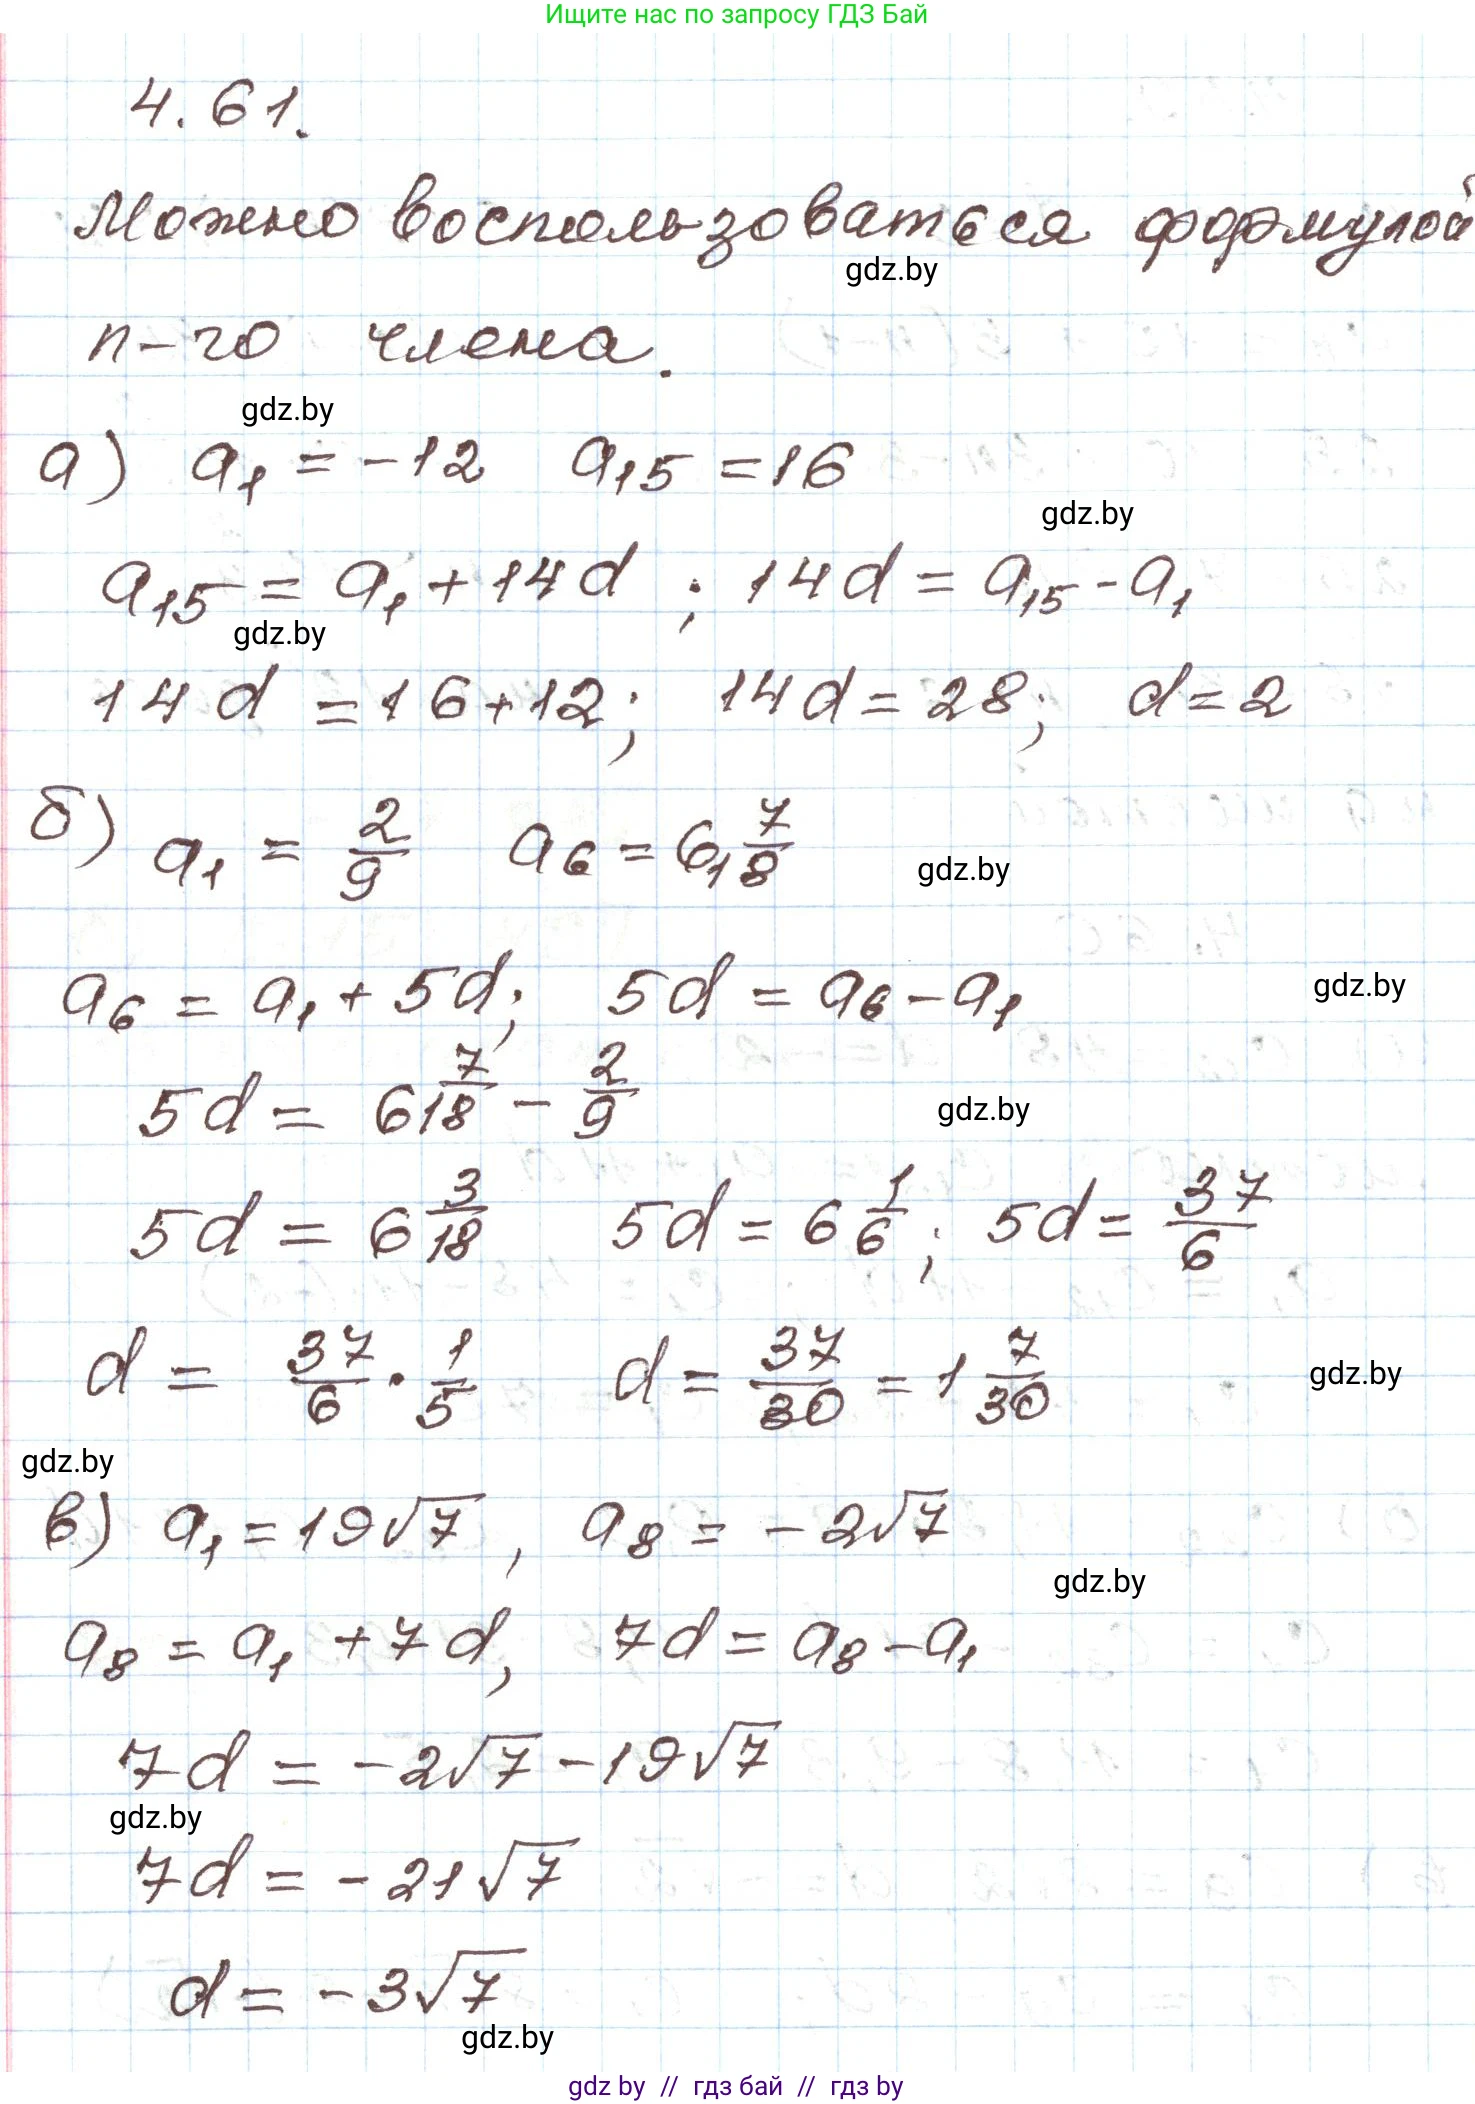 Ищите нас по запросу ГДЗ Бай
4.61.
Можно воспользоваться формулой
gdz.by
n-го члена.
gdz.by
а) a₁ = -12 a₁₅ = 16
gdz.by
a₁₅ = a₁ + 14d ; 14d = a₁₅ - a₁
gdz.by
14d = 16 + 12; 14d = 28; d = 2
б) a₁ = 2/9 a₆ = 6 7/18
gdz.by
a₆ = a₁ + 5d; 5d = a₆ - a₁
gdz.by
5d = 6 7/18 - 2/9
gdz.by
5d = 6 3/18 5d = 6 1/6; 5d = 37/6
d = 37/6 · 1/5 d = 37/30 = 1 7/30
gdz.by
gdz.by
в) a₁ = 19√7, a₈ = -2√7
gdz.by
a₈ = a₁ + 7d, 7d = a₈ - a₁
7d = -2√7 - 19√7
gdz.by
7d = -21√7
d = -3√7
gdz.by
gdz by // гдз бай // гдз by